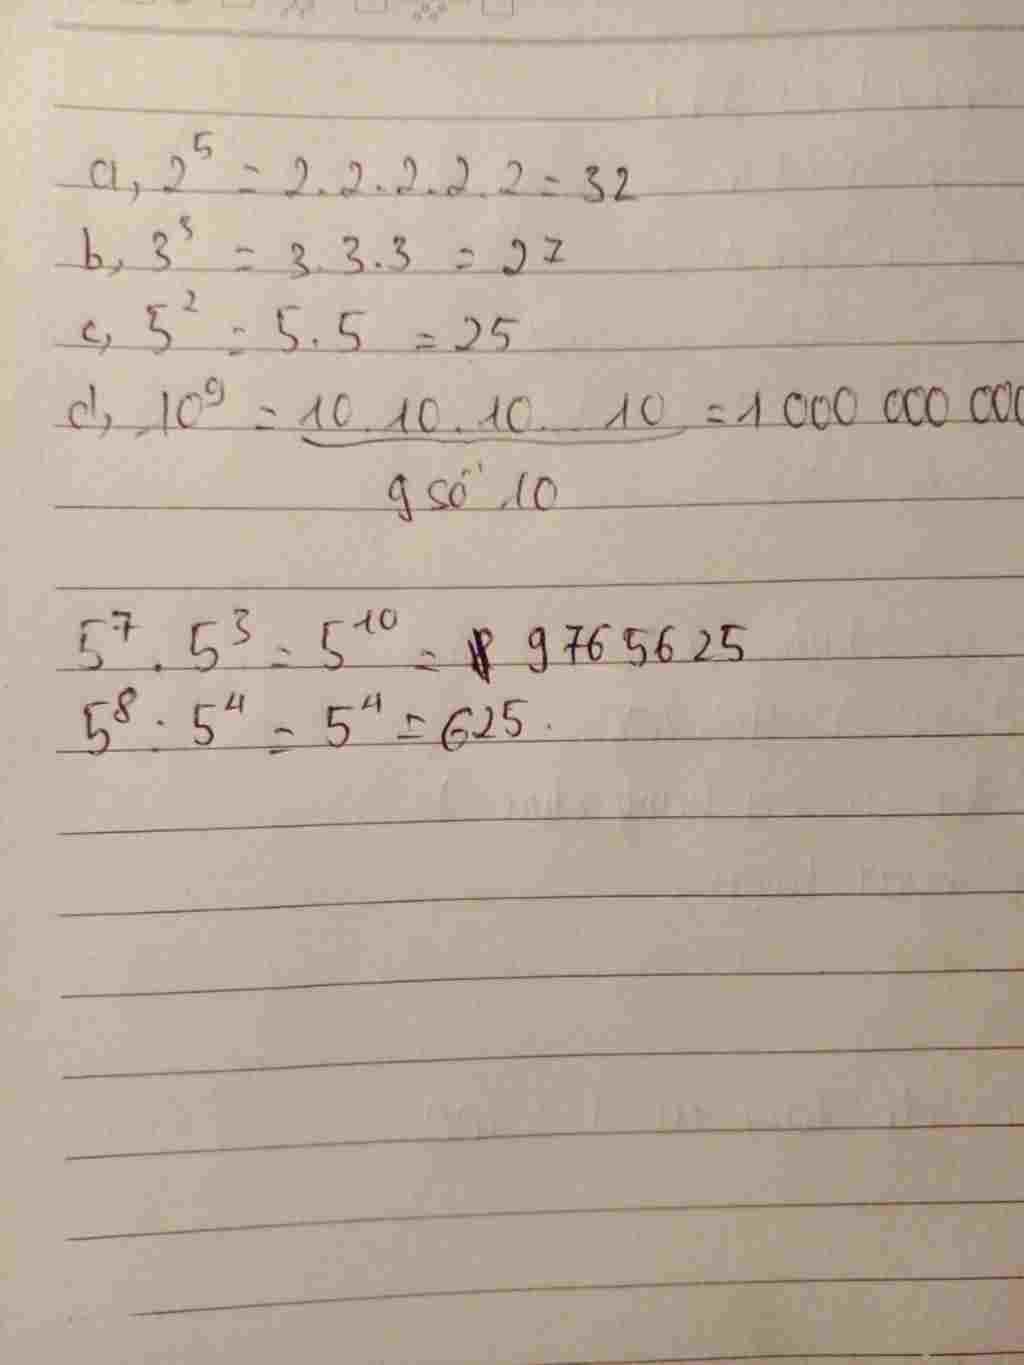 a, 2⁵ = 2.2.2.2.2 = 32
b, 3³ = 3.3.3 = 27
c, 5² = 5.5 = 25
d, 10⁹ = 10.10.10...10 = 1 000 000 000
9 số 10
5⁷ . 5³ = 5¹⁰ = 9765625
5⁸ : 5⁴ = 5⁴ = 625.